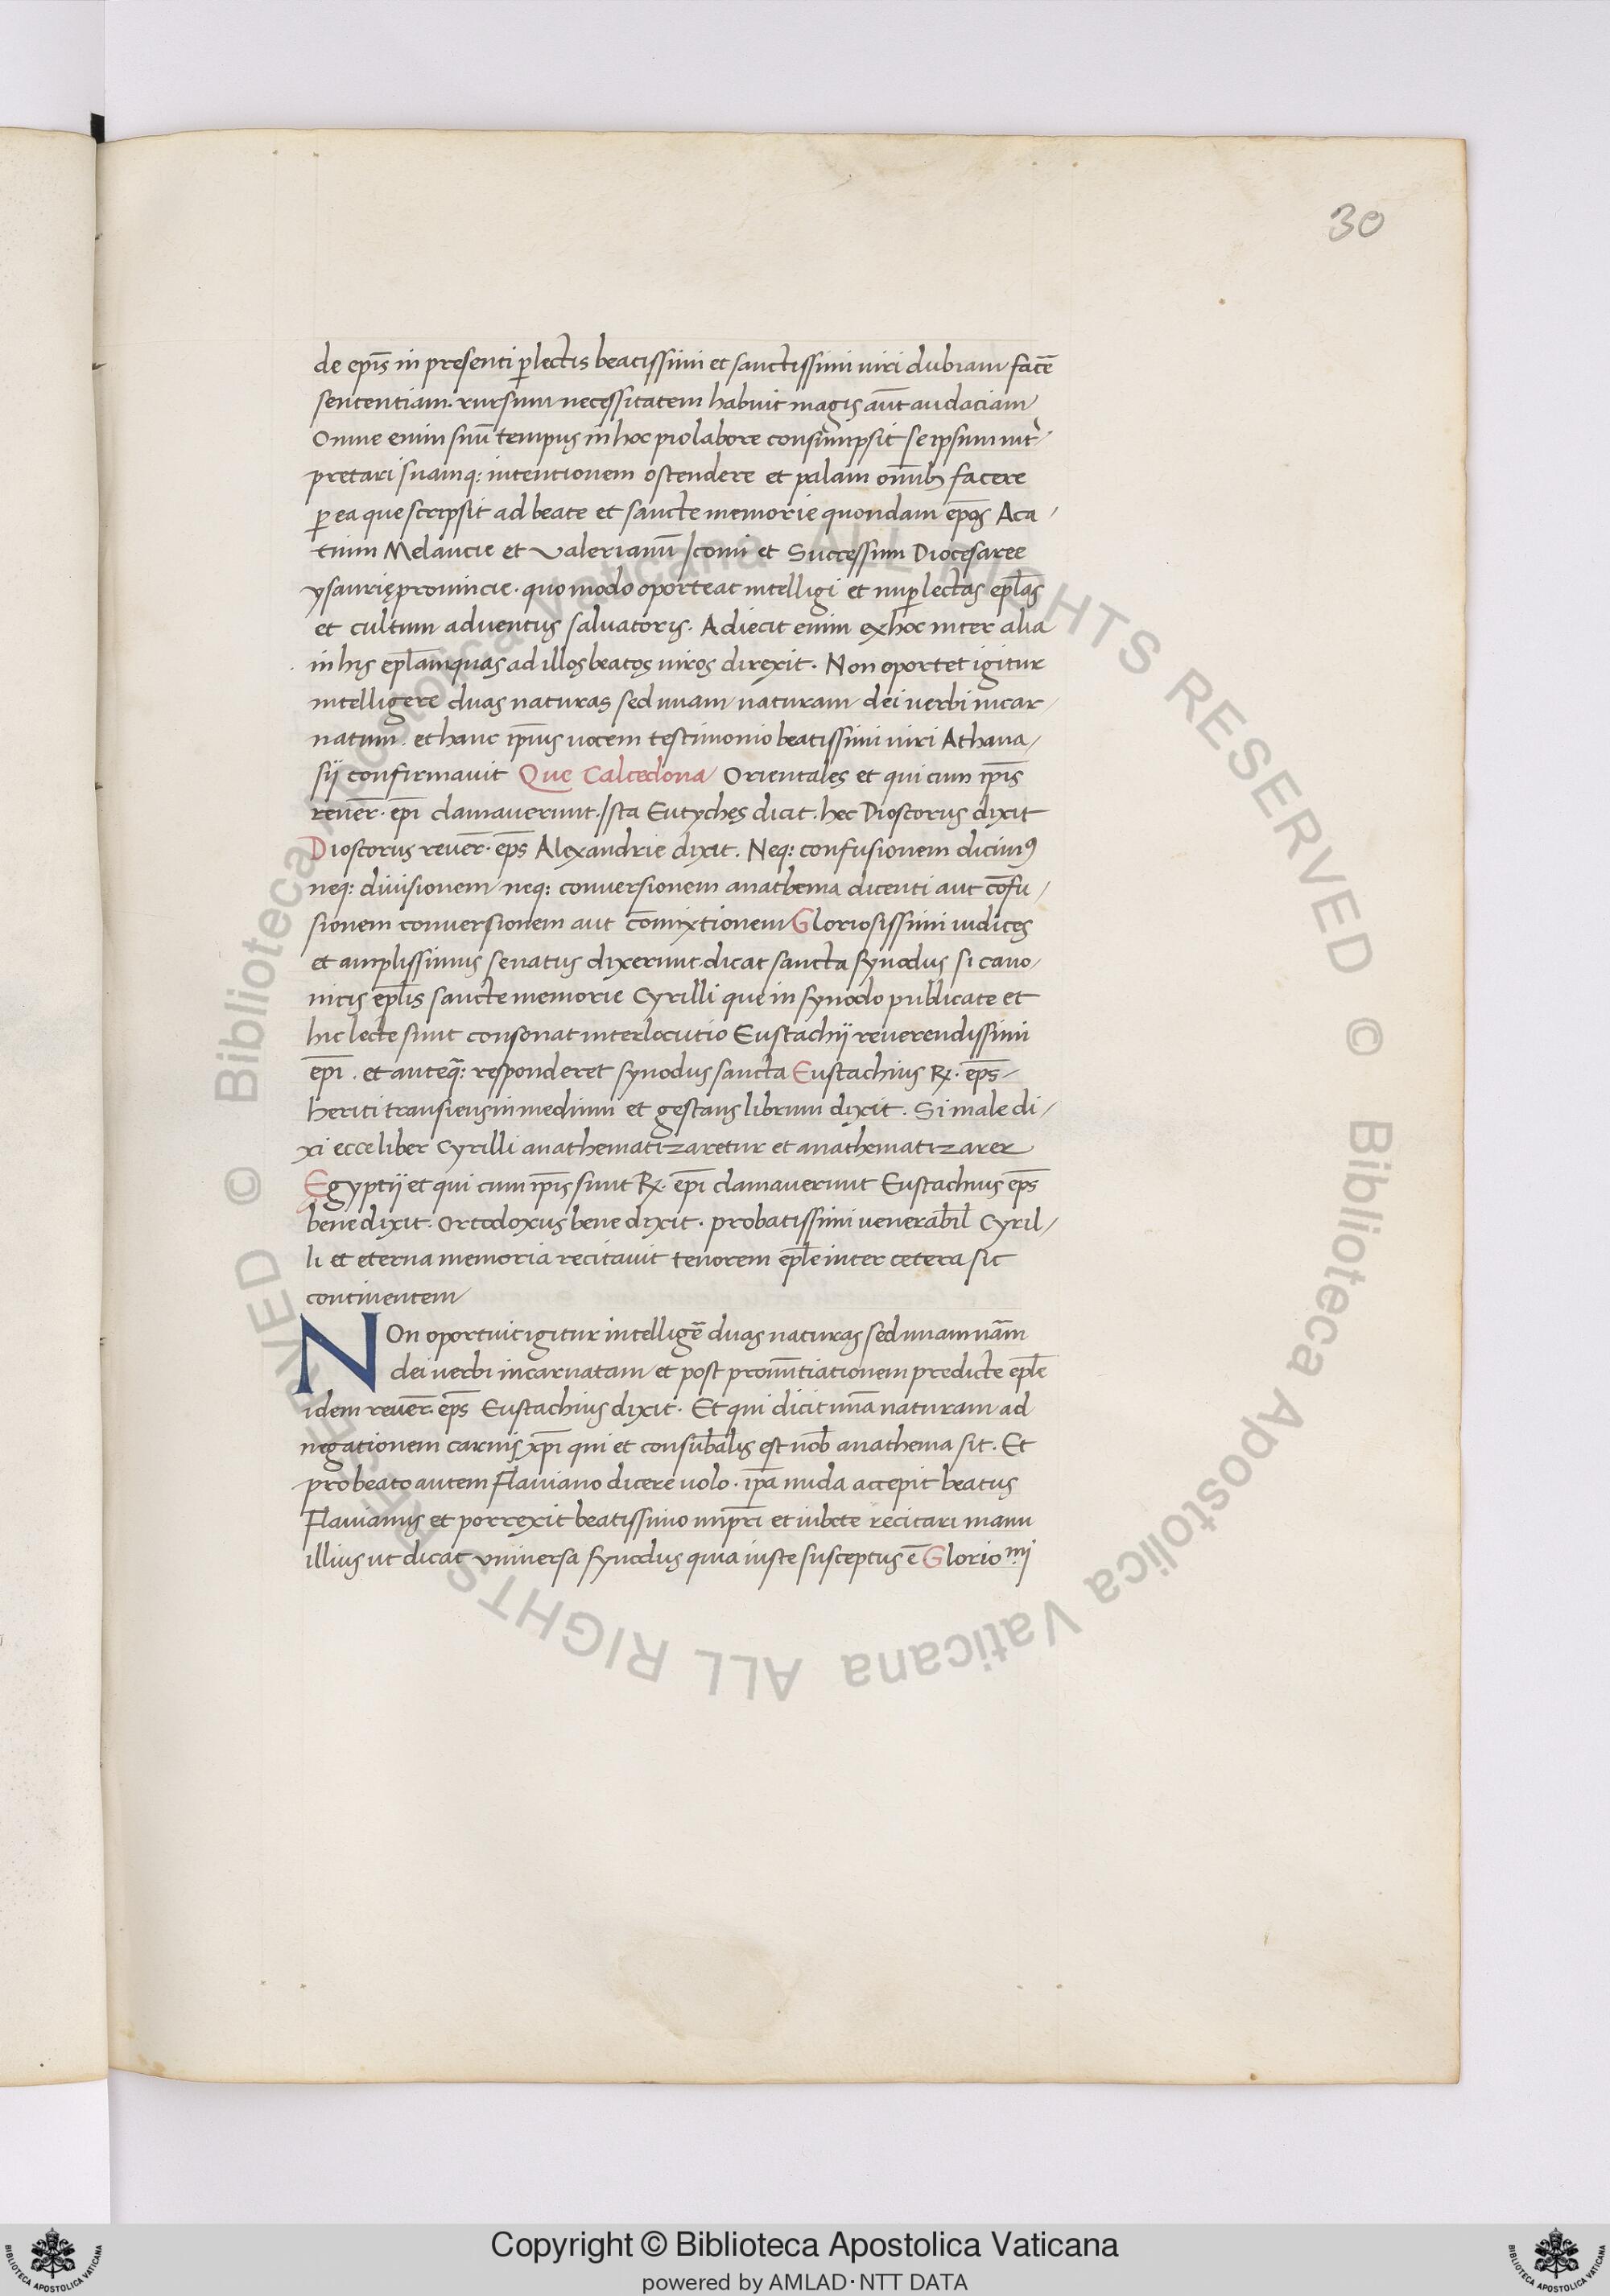 30
de ep̄is in presenti ꝑlectis beatissimi et sanctissimi uiri dubiam facē
sententiam. rursum necessitatem habuit magis aūt audaciam
Omne enim suū tempus in hoc pio labore consumpsit se ipsum int̄
pretari suamq: intentionem ostendere et palam om̄ibꝫ facere
ꝑ ea que scripsit ad beate et sancte memorie quondam ep̄os Aca
tium Melancie et Valerianū Iconii et Successum Diocesaree
ysaurię prouincie. quomodo oporteat intelligi et nuꝑ lectas ep̄las
et cultum aduentus saluatoris. Adiecit enim ex hoc inter alia
in his ep̄lam quas ad illos beatos uiros direxit. Non oportet igitur
intelligere duas naturas sed unam naturam dei uerbi incar
natum. et hanc ip̄ius uocem testimonio beatissimi uiri Athana
sij confirmauit Que Calcedona Orientales et qui cum ip̄is
reuer̄. ep̄i clamauerunt. Ista Eutyches dicit. hec Dioscorus dixit
Dioscorus reuer̄. ep̄s Alexandrie dixit. Neq: confusionem dicimꝰ
neq: diuisionem neq: conuersionem anathema dicenti aut cōfu
sionem conuersionem aut cōmixtionem Gloriosissimi iudices
et amplissimus senatus dixerunt. dicat sancta synodus si cano
nicis ep̄lis sancte memorie Cyrilli que in synodo publicate et
hic lecte sunt consonat interlocutio Eustachij reuerendissimi
ep̄i. et anteq̄: responderet synodus sancta Eustachius R. ep̄s
beriti transiens in medium et gestans librum dixit. Si male di
xi ecce liber Cyrilli anathematizaretur et anathematizarer
Egyptij et qui cum ip̄is sunt R. ep̄i clamauerunt Eustachius ep̄s
bene dixit. Ortodoxus bene dixit. probatissimi uenerabil̄ Cyril
li et eterna memoria recitauit tenorem ep̄le inter cetera sic
continentem
NOn oportuit igitur intelligē duas naturas sed unam nām
dei uerbi incarnatam et post pronūtiationem predicte ep̄le
idem reuer̄. ep̄s Eustachius dixit. Et qui dicit unā naturam ad
negationem carnis xp̄i qui et consub̄alis est nob̄ anathema sit. Et
pro beato autem Flauiano dicere uolo. ip̄a nuda accepit beatus
Flauianus et porrexit beatissimo imp̄ri et iubete recitari manu
illius ut dicat uniuersa synodus quia iuste susceptus ē Glorio.mi
© Biblioteca Apostolica Vaticana ALL RIGHTS RESERVED
© Biblioteca Apostolica Vaticana ALL RIGHTS RESERVED
Copyright © Biblioteca Apostolica Vaticana
powered by AMLAD·NTT DATA
BIBLIOTECA APOSTOLICA VATICANA
BIBLIOTECA APOSTOLICA VATICANA